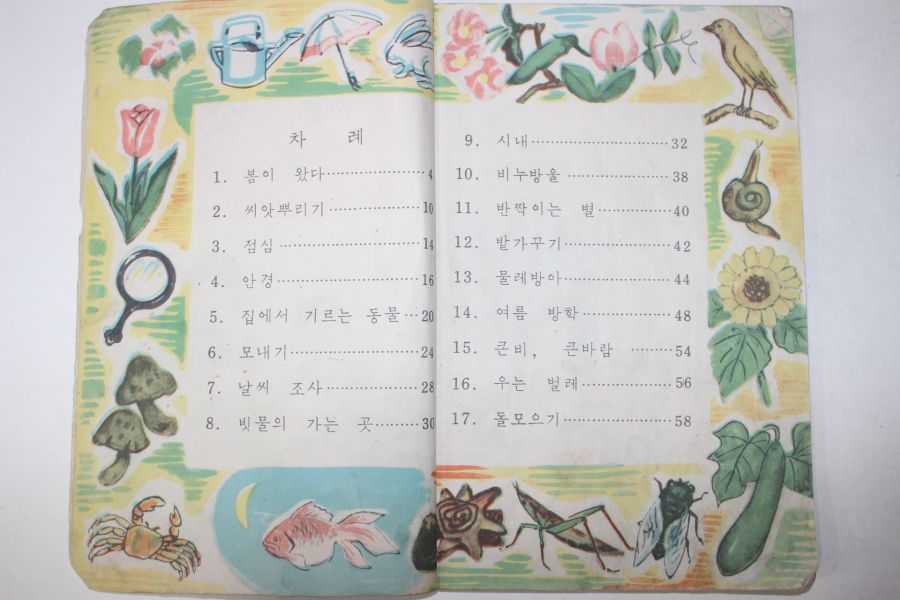 차 례
1. 봄이 왔다 4
2. 씨앗뿌리기 10
3. 점심 14
4. 안경 16
5. 집에서 기르는 동물 20
6. 모내기 24
7. 날씨 조사 28
8. 빗물의 가는 곳 30
9. 시내 32
10. 비누방울 38
11. 반짝이는 별 40
12. 밭가꾸기 42
13. 물레방아 44
14. 여름 방학 48
15. 큰비, 큰바람 54
16. 우는 벌레 56
17. 돌모으기 58